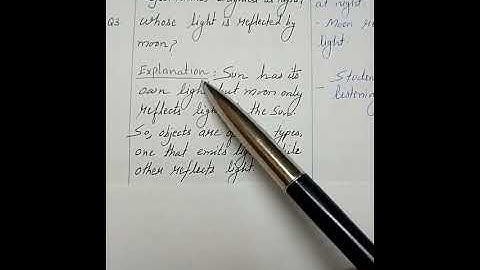 Q3.
whose light is reflected by
moon?
Explanation: Sun has its
own light but moon only
reflects light the Sun.
So, objects are types,
one that emits while
other reflects light.
at night
- Moon
light.
- Studen
listening